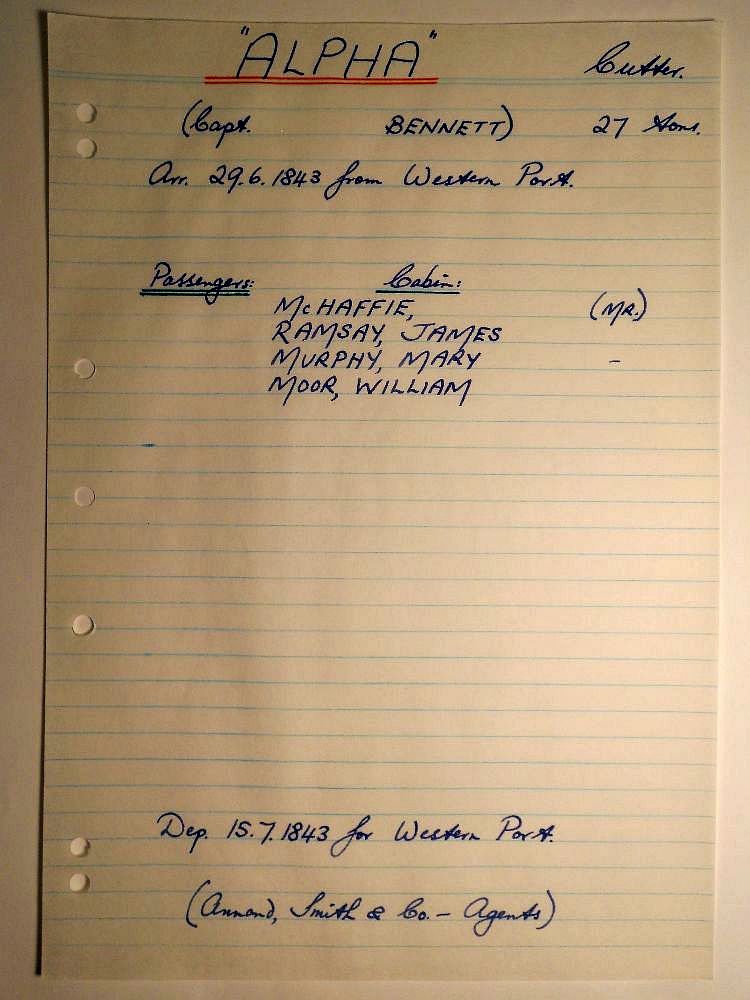 "ALPHA" Cutter.
(Capt. BENNETT) 27 tons.
Arr. 29.6.1843 from Western Port.
Passengers: Cabin:
McHAFFIE, (MR.)
RAMSAY, JAMES
MURPHY, MARY -
MOOR, WILLIAM
Dep. 15.7.1843 for Western Port.
(Annand, Smith & Co. - Agents)